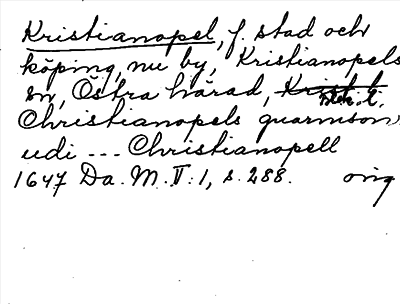 Kristianopel, f. stad och
köping, nu by, Kristianopels
sn, Östra härad, Blek. l.
Christianopels guarnison,
udi --- Christianopell
1647 Da. M. V: 1, s. 288. orig